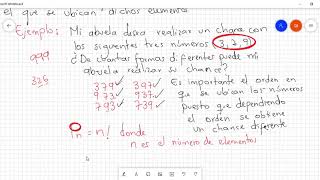 el que se ubican dichos elementos
Ejemplo: Mi abuela desea realizar un chance con
los siguientes tres números 3, 7, 9
999
¿De cuantas formas diferentes puede mi
abuela realizar su chance?
326
379 ✓ 397 ✓ Es importante el orden en
973 ✓ 937 ✓ que se ubican los números
793 ✓ 739 ✓ puesto que dependiendo
el orden se obtiene
un chance diferente
Pn = n! donde
n es el número de elementos